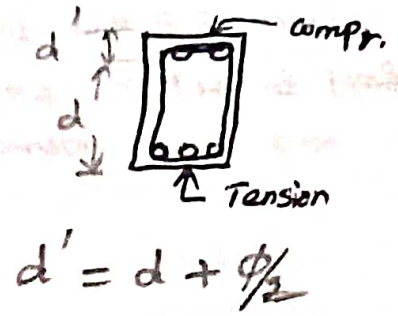 d'
compr.
d
Tension
d' = d + φ/2